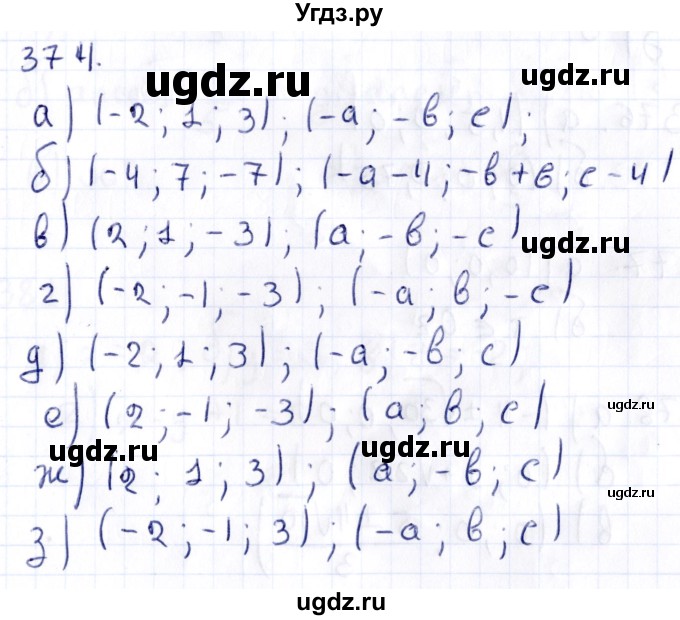 Угдз.ру
374.
ugdz.ru
а) (-2; 1; 3); (-а; -в; с);
б) (-4; 7; -7); (-а-4; -в+6; с-4)
в) (2; 1; -3); (а; -в; -с)
ugdz.ru
г) (-2; -1; -3); (-а; в; -с)
д) (-2; 1; 3); (-а; -в; с)
е) (2; -1; -3); (а; в; с)
ugdz.ru
ugdz.ru ugdz.ru
ж) (2; 1; 3); (а; -в; с)
ugdz.ru
з) (-2; -1; 3); (-а; в; с)
ugdz.ru
ugdz.ru